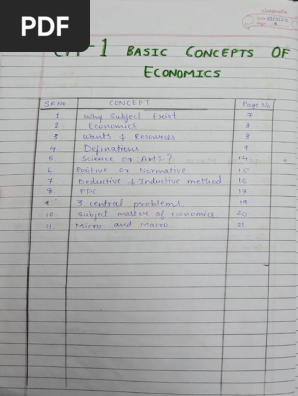 PDF
CH-1 BASIC CONCEPTS OF
ECONOMICS
SR NO CONCEPT Page No
1 Why Subject Exist 7
2 Economics 8
3 Wants & Resources 8
4 Definations 9
5 Science or Arts? 14
6 Positive or Normative 15
7 Deductive & Inductive method 16
8 PPC 17
9 3 central problems 19
10 Subject matter of economics 20
11 Micro and Macro 21